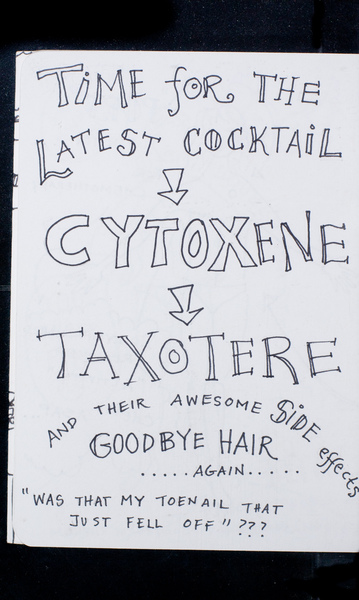 TiME foR THE
LATEST COCKTAiL
CYTOXENE
TAXOTERE
AND THEIR AWESOME SiDE effects
GOODBYE HAIR
.....AGAIN.....
"WAS THAT MY TOENAIL THAT
JUST FELL OFF" ???